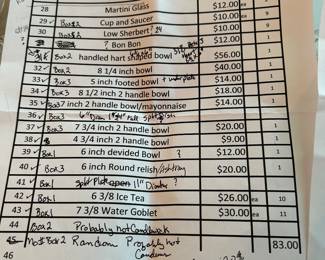 28 Martini Glass $12.00 ea
29 ✓ Box 2 Cup and Saucer $10.00 ea 9
30 Box 2 Low Sherbert ? 24 $10.00 9
? Bon Bon $12.00 1
Box 2 handled hart shaped bowl $56.00 1
32 Box 2 8 1/4 inch bowl $40.00 1
33 ✓ Box 3 5 inch footed bowl $14.00 1
34 ✓ Box 3 8 1/2 inch 2 handle $18.00 1
35 ✓ Box 3 7 inch 2 handle bowl/mayonnaise $14.00 1
36 ✓ Box 3 6" Diam
37 ✓ Box 3 7 3/4 inch 2 handle bowl $20.00 1
38 ✓ 4 3/4 inch 2 handle bowl $9.00 1
39 ✓ Box 1 6 inch devided Bowl ? $12.00 1
40 ✓ Box 3 6 inch Round relish/ishtray $20.00 1
41 ✓ Box 1 Split Plate open 11" Diameter ?
42 ✓ Box 1 6 3/8 Ice Tea $26.00 ea 10
43 ✓ Box 1 7 3/8 Water Goblet $30.00 ea 11
44 Box 2 Probably not Candlewick
45 Box 2 Random Probably Not 83.00
46